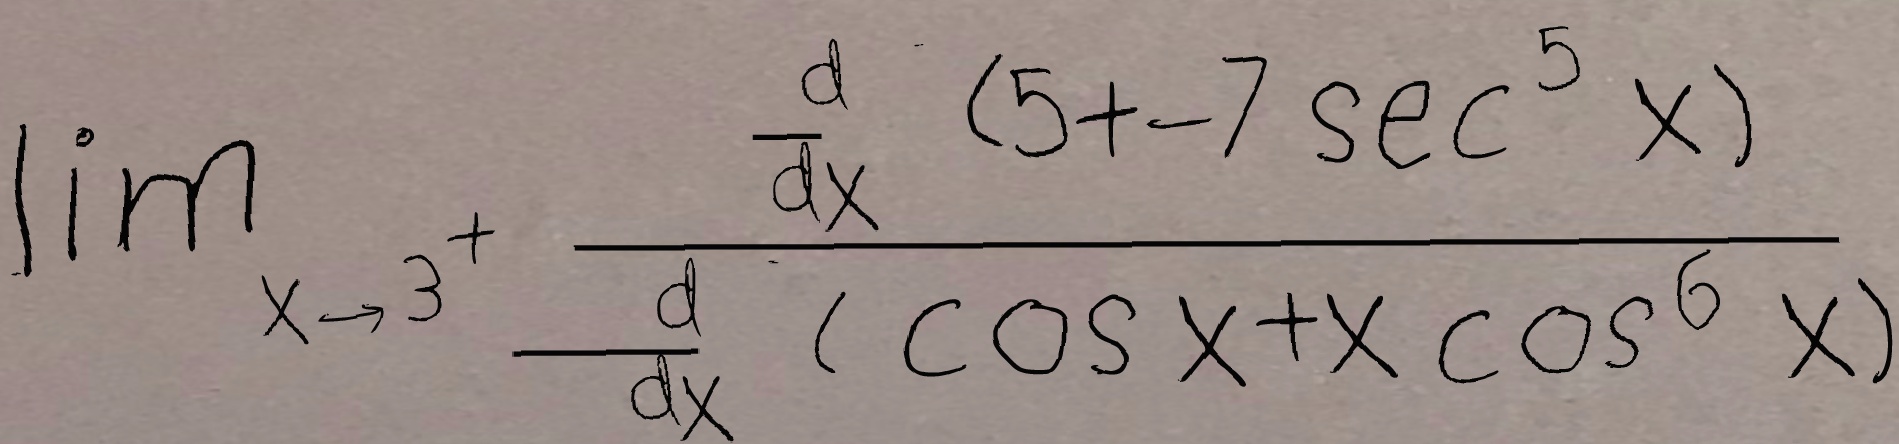 \lim_{x \to 3^+} \frac{\frac{d}{dx}(5+-7\sec^5 x)}{\frac{d}{dx}(\cos x+x\cos^6 x)}